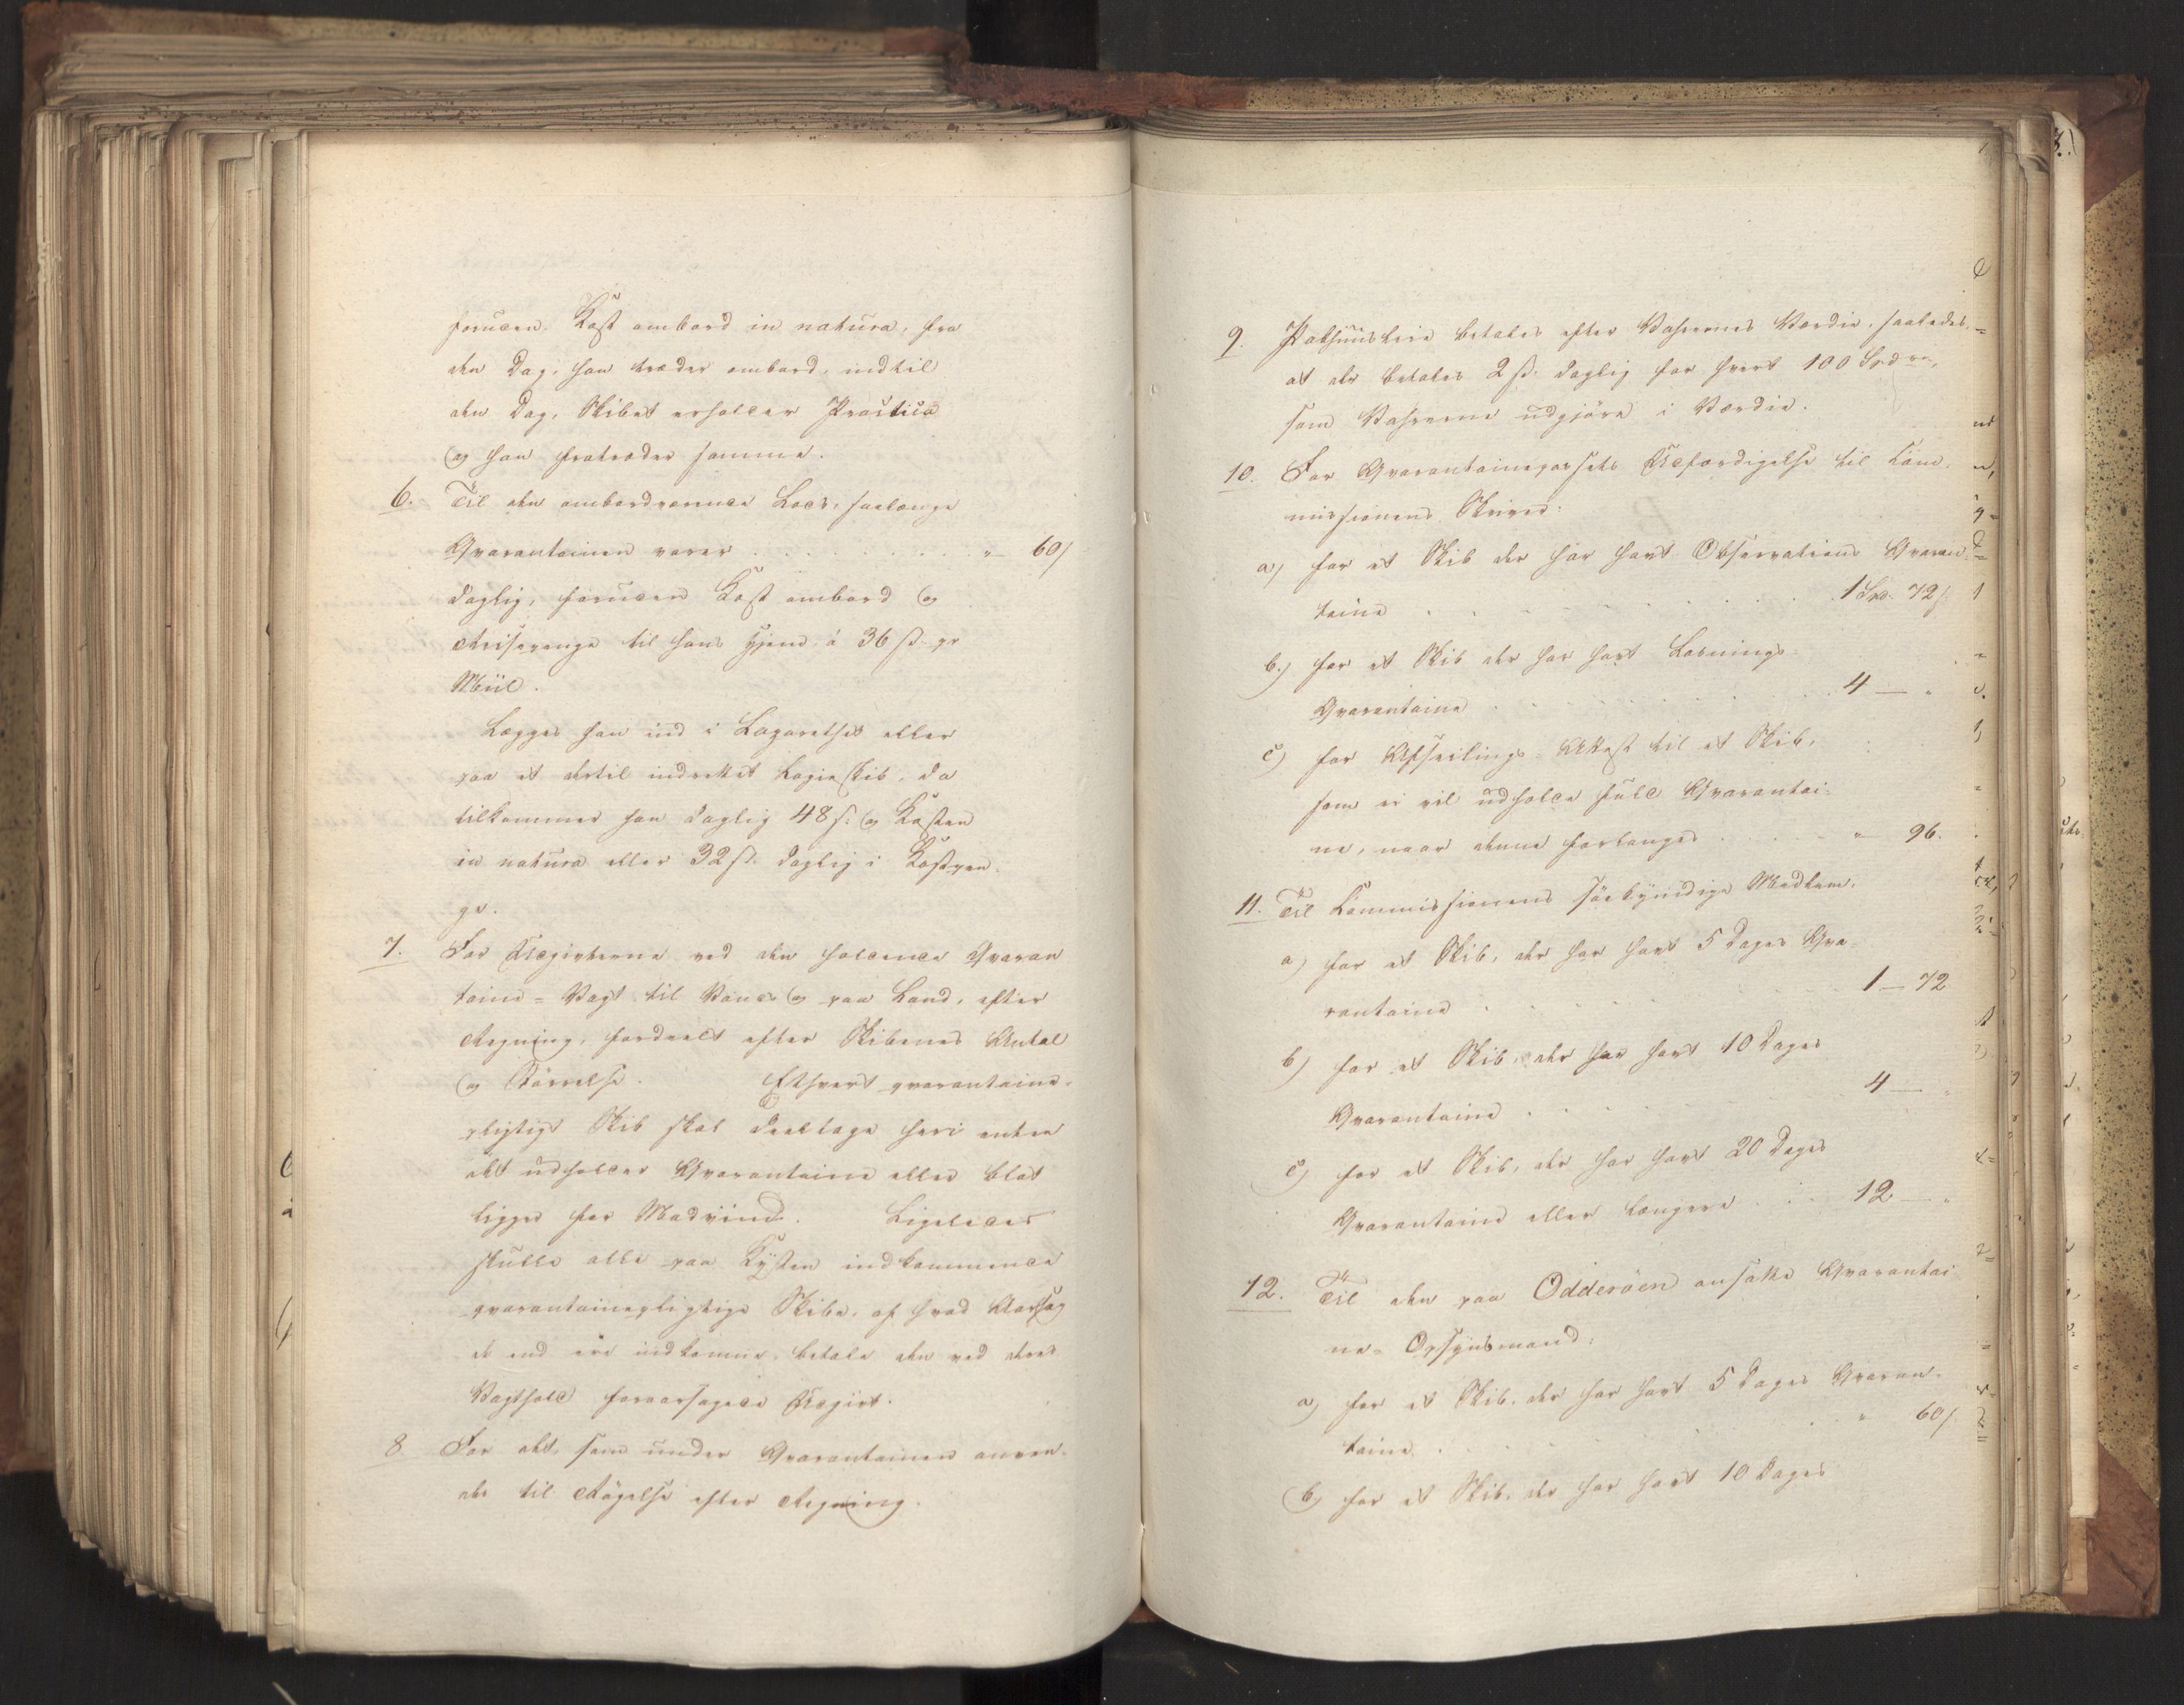 foruden Kost ombord in natura, fra
den Dag, han træder ombord, indtil
den Dag, Skibet erholder Practica
og han fratræder samme.
6. Til den ombordværende Lods, saalænge
Qvarantainen varer . . . . . . . . . " 60 s
daglig, foruden Kost ombord og
Reisepenge til hans Hjem, à 36 s. pr
Miil.
Lægges han ind i Lazarethet eller
paa et dertil indrettet Logieskib, da
tilkommer han daglig 48 s. og Kosten
in natura eller 32 s. daglig i Kostpen-
ge.
7. For Udgivterne ved den holdende Qvaran
taine = Vagt til Vands og paa Land, efter
Regning, fordeelt efter Skibenes Antal
og Størrelse. Ethvert qvarantaine-
pligtigt Skib skal deeltage heri enten
det udholder Qvarantaine eller blot
ligger for Modvind. Ligeledes
skulle alle paa Kysten indkommende
qvarantainepligtige Skibe, af hvad Aarsag
de end ere indkomne, betale den ved deres
Vagthold foraarsagede Udgivt.
8 For det, som under Qvarantainen anven-
des til Røgelse efter Regning.
9. Pakhuusleie betales efter Vahrenes Værdie, saaledes,
at der betales 2 s. daglig for hvert 100 Spdr.,
som Vahrerne udgjøre i Værdie.
10. For Qvarantainepassets Udfærdigelse til Com-
missionens Skriver:
a) for et Skib der har havt Observations Qvaran-
taine . . . . . . . . . 1 Spd. 72 s.
b.) for et Skib der har havt Losnings-
Qvarantaine . . . . . . . . . 4 — "
c) for Afseilings-Attest til et Skib,
som ei vil udholde fuld Qvarantai-
ne, naar denne forlanges . . . . . " 96.
11. Til Commissionens søekyndige Medlem:
a) for et Skib, der har havt 5 Dages Qva-
rantaine . . . . . . . . . 1 — 72
b) for et Skib, der har havt 10 Dages
Qvarantaine . . . . . . . . . 4 — "
c) for et Skib, der har havt 20 Dages
Qvarantaine eller længere . . . 12 — "
12. Til den paa Odderöen ansatte Qvarantai
ne-Opsynsmand:
a) for et Skib, der har havt 5 Dages Qvaran-
taine . . . . . . . . . " 60 s.
b) for et Skib, der har havt 10 Dages